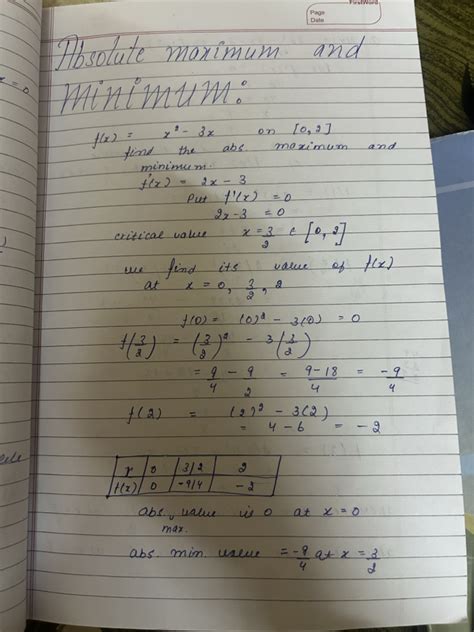 FirstWord
Page
Date
Absolute maximum and
minimum:
f(x) = x² - 3x on [0,2]
find the abs maximum and
minimum.
f'(x) = 2x - 3
Put f'(x) = 0
2x-3 = 0
critical value x = 3/2 ∈ [0,2]
we find its value of f(x)
at x = 0, 3/2, 2
f(0) = (0)² - 3(0) = 0
f(3/2) = (3/2)² - 3(3/2)
= 9/4 - 9/2 = 9-18/4 = -9/4
f(2) = (2)² - 3(2)
= 4-6 = -2
x 0 3/2 2
f(x) 0 -9/4 -2
abs. value is 0 at x=0
max.
abs. min. value = -9/4 at x = 3/2